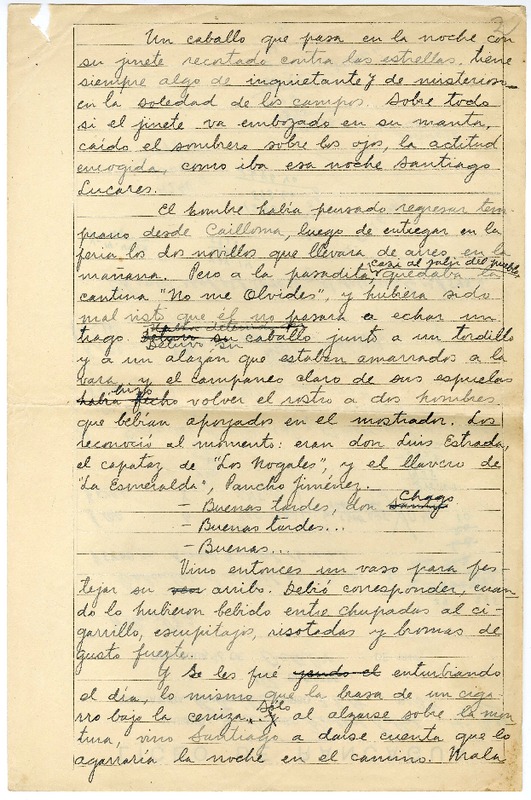 Un caballo que pasa en la noche con
su jinete recortado contra las estrellas, tiene
siempre algo de inquietante y de misterioso
en la soledad de los campos. Sobre todo
si el jinete va embozado en su manta,
caído el sombrero sobre los ojos, la actitud
encogida, como iba esa noche Santiago
Lucares.
El hombre había pensado regresar tem-
prano desde Cailloma, luego de entregar en la
feria los dos novillos que llevara de arreo en la
mañana. Pero a la pasadita
casi al salir del pueblo
quedaba la
cantina "No me Olvides", y hubiera sido
mal visto que él no pasara a echar un
trago.
Detuvo su caballo junto a un tordillo
y a un alazán que estaban amarrados a la
vara, y el campaneo claro de sus espuelas
hizo
había hecho volver el rostro a dos hombres
que bebían apoyados en el mostrador. Los
reconoció al momento: eran don Luis Estrada,
el capataz de "Los Nogales", y el llavero de
"La Esmeralda", Pancho Jiménez.
Chago
- Buenas tardes, don
- Buenas tardes...
- Buenas...
Vino entonces un vaso para fes-
tejar su arribo. Debió corresponder, cuan-
do lo hubieron bebido entre chupadas al ci-
garrillo, escupitajos, risotadas y bromas de
gusto fuerte.
Y se les fué yendo el enturbiando
el día, lo mismo que la brasa de un ciga-
Sólo
rro bajo la ceniza... al alzarse sobre la mon-
tura, vino Santiago a darse cuenta que lo
agarraría la noche en el camino. Mala